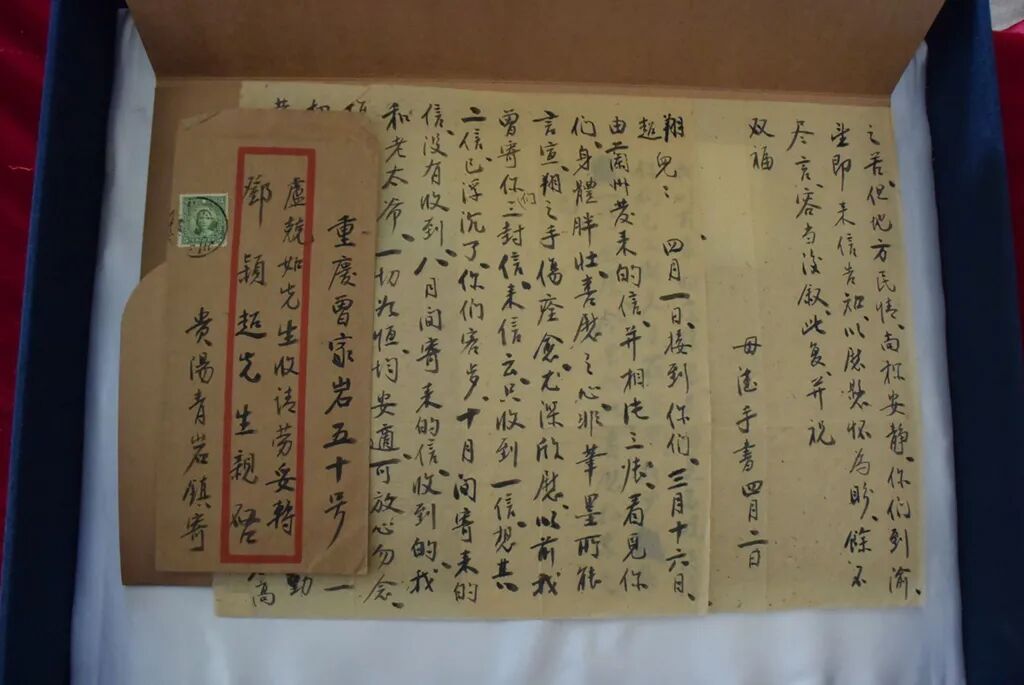 之苦、但地方民情、尚称安静、你们到渝、
望即来信告知、以慰愁怀为盼、餘不
尽言、容当后叙、此复、并祝
双福
母德手書 四月二日
翔超兒：四月一日、接到你们、三月十六日、
由蘭州发来的信、并相片三张、看見你
们、身體胖壮、喜慰之心、非筆墨所能
言宣、翔之手傷痊愈、尤深欣慰、以前我
曾寄你们三封信、来信云、只收到一信、想其
二信已浮沉了、你们客岁、十月间寄来的
信、没有收到、八月间寄来的信、收到的、我
和老太爷、一切如恒、均安適、可放心勿念、
重慶曾家岩五十号
盧競如先生收请劳妥轉
鄧穎超先生親啓
貴陽青岩鎮寄